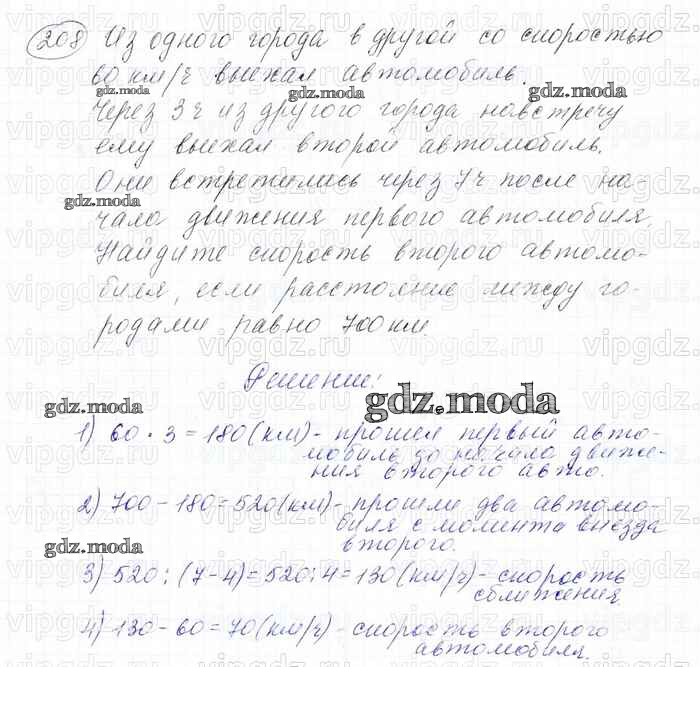 208 Из одного города в другой со скоростью
60 км/ч выехал автомобиль.
Через 3 ч из другого города навстречу
ему выехал второй автомобиль.
Они встретились через 7 ч после на-
чала движения первого автомобиля.
Найдите скорость второго автомо-
биля, если расстояние между го-
родами равно 700 км.
Решение:
1) 60 · 3 = 180 (км) - прошел первый авто-
мобиль до начала движе-
ния второго авто.
2) 700 - 180 = 520 (км) - прошли два автомо-
биля с момента выезда
второго.
3) 520 : (7-4) = 520 : 4 = 130 (км/ч) - скорость
сближения.
4) 130 - 60 = 70 (км/ч) - скорость второго
автомобиля.
gdz.moda
gdz.moda
gdz.moda
gdz.moda
gdz.moda
gdz.moda
gdz.moda
gdz.moda
vipgdz.ru